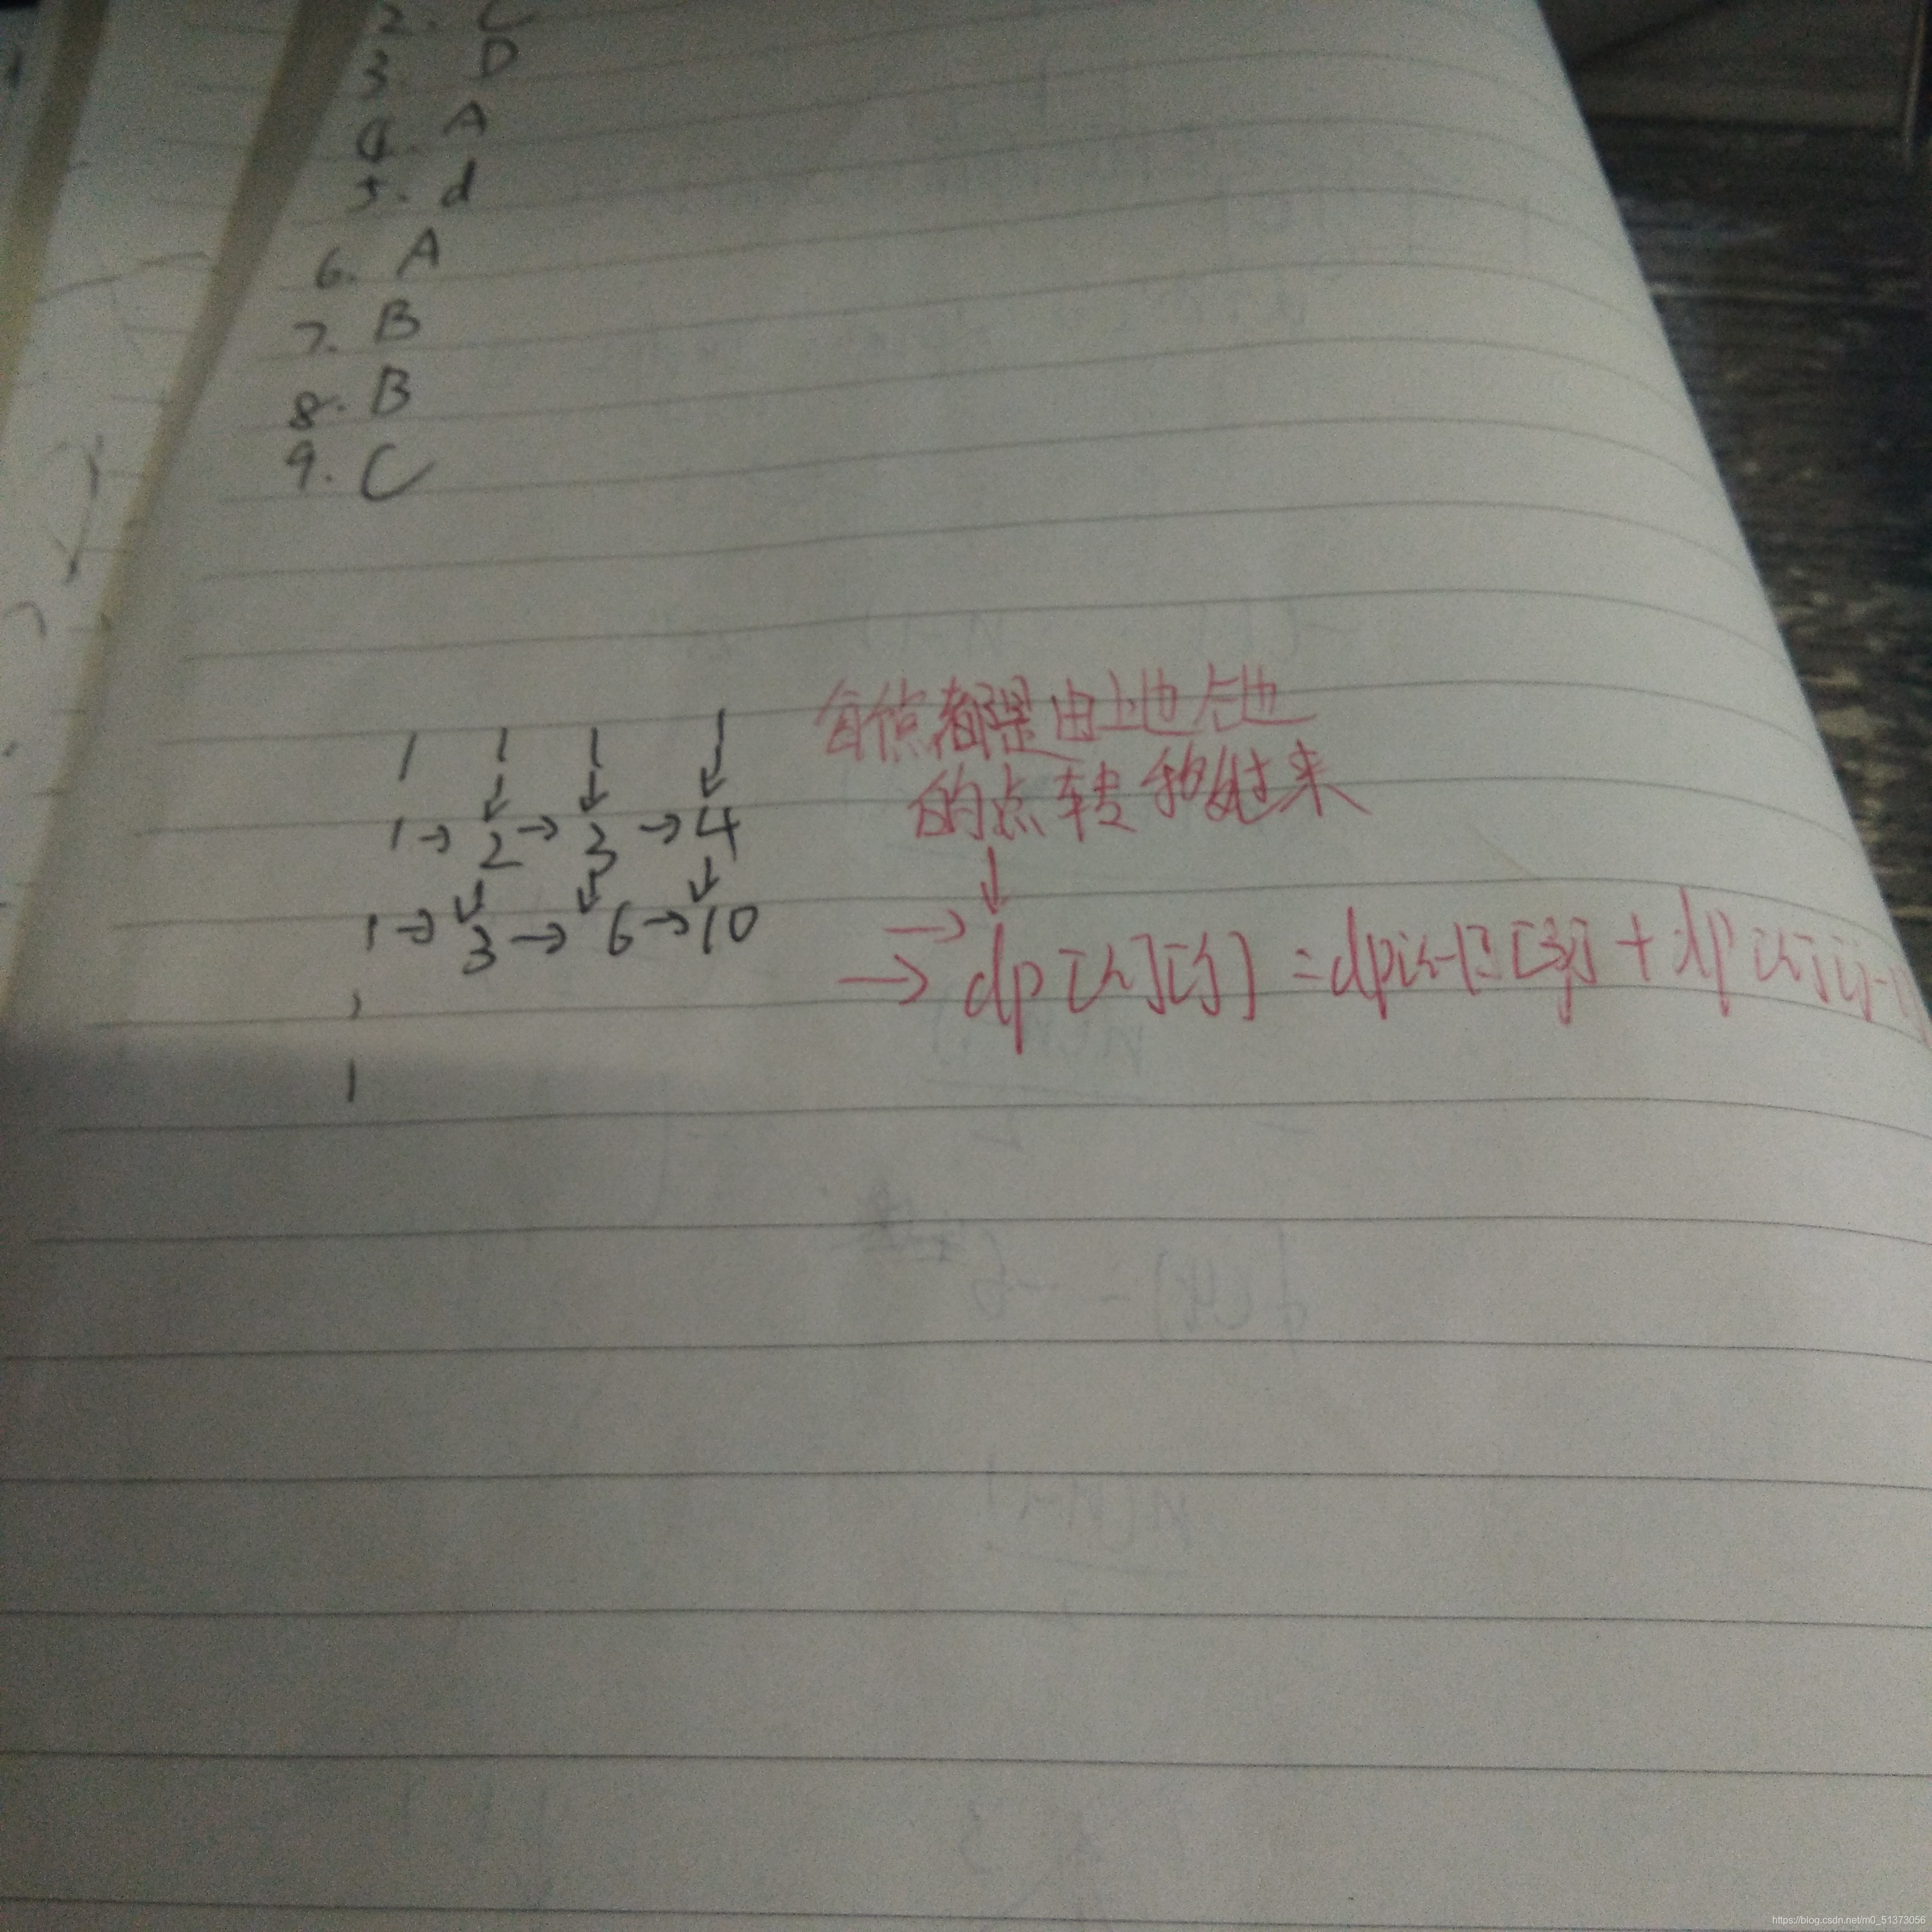 2. C
3. D
4. A
5. d
6. A
7. B
8. B
9. C
1 1 1 1
1 → 2 → 3 → 4
1 → 3 → 6 → 10
1
1
每个点都是由上边左边
的点转移过来
→ dp[i][j] = dp[i-1][j] + dp[i][j-1]
https://blog.csdn.net/m0_51373056